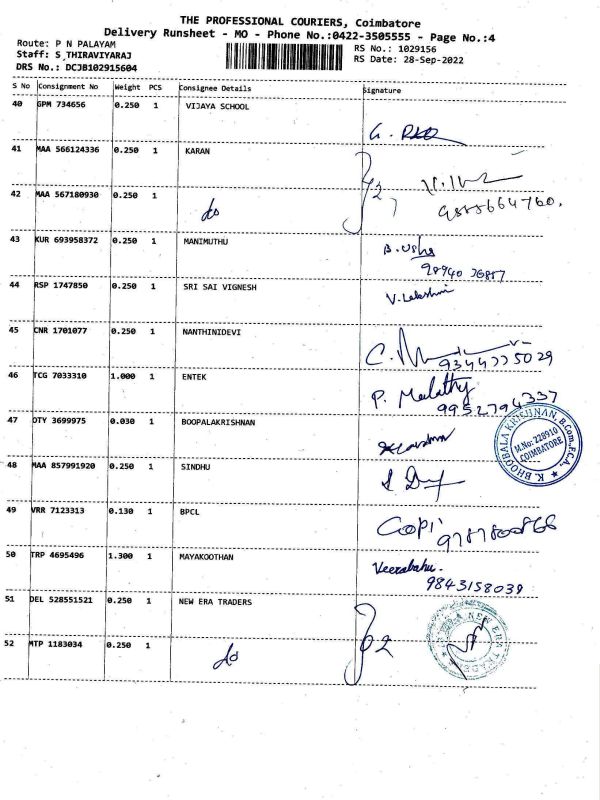 THE PROFESSIONAL COURIERS, Coimbatore
Delivery Runsheet - MO - Phone No.:0422-3505555 - Page No.:4
Route: P N PALAYAM
Staff: S THIRAVIYARAJ
DRS No.: DCJB102915604
RS No.: 1029156
RS Date: 28-Sep-2022
S No Consignment No Weight PCS Consignee Details Signature
40 GPM 734656 0.250 1 VIJAYA SCHOOL
41 MAA 566124336 0.250 1 KARAN
42 MAA 567180930 0.250 1 do
43 KUR 693958372 0.250 1 MANIMUTHU B. Usha
28940 36857
44 RSP 1747850 0.250 1 SRI SAI VIGNESH V. Lakshmi
45 CNR 1701077 0.250 1 NANTHINIDEVI
9344775029
46 TCG 7033310 1.000 1 ENTEK P. Malathy
9952794337
47 OTY 3699975 0.030 1 BOOPALAKRISHNAN
K. BHOOBALA KRISHNAN, B.Com., F.C.A.,
M.No: 228910
COIMBATORE
48 MAA 857991920 0.250 1 SINDHU
49 VRR 7123313 0.130 1 BPCL Gopi
9787800868
50 TRP 4695496 1.300 1 MAYAKOOTHAN Veerabahu.
9843158039
51 DEL 528551521 0.250 1 NEW ERA TRADERS
NEW ERA TRADERS
52 MTP 1183034 0.250 1 do